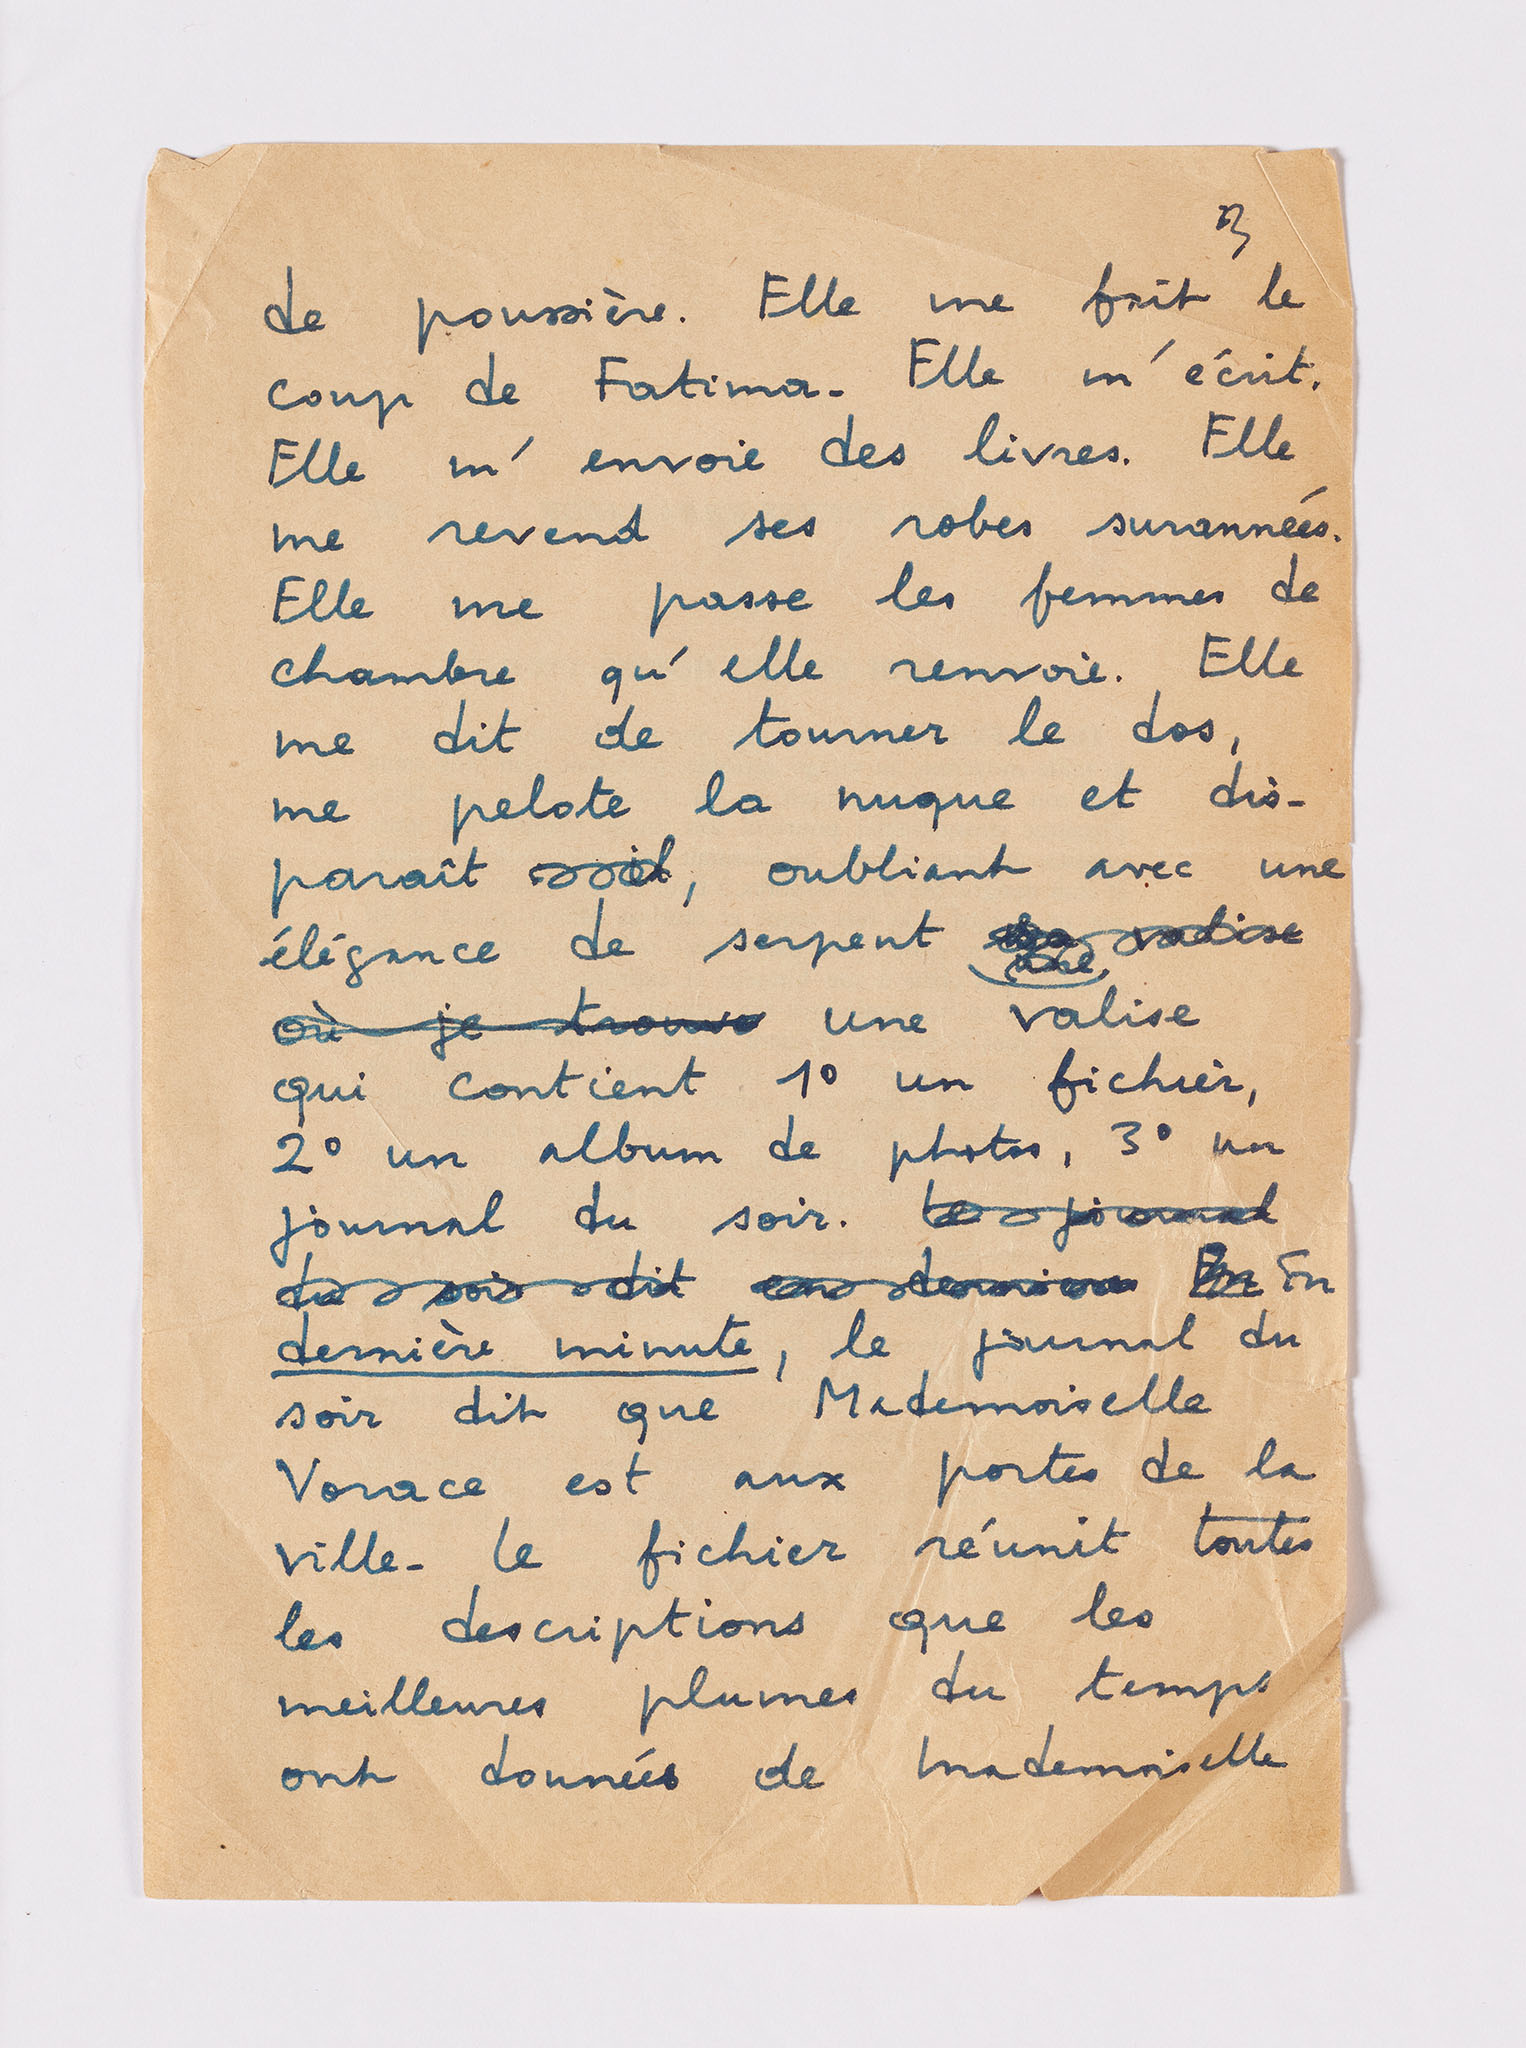 3
de poussière. Elle me fait le
coup de Fatima. Elle m'écrit.
Elle m'envoie des livres. Elle
me revend ses robes surannées.
Elle me passe les femmes de
chambre qu'elle renvoie. Elle
me dit de tourner le dos,
me pelote la nuque et dis-
paraît, oubliant avec une
élégance de serpent valise
une
où je trouve une valise
qui contient 1° un fichier,
2° un album de photos, 3° un
journal du soir. Le journal
du soir dit en dernière En En
dernière minute, le journal du
soir dit que Mademoiselle
Vorace est aux portes de la
ville. Le fichier réunit toutes
les descriptions que les
meilleures plumes du temps
ont données de Mademoiselle